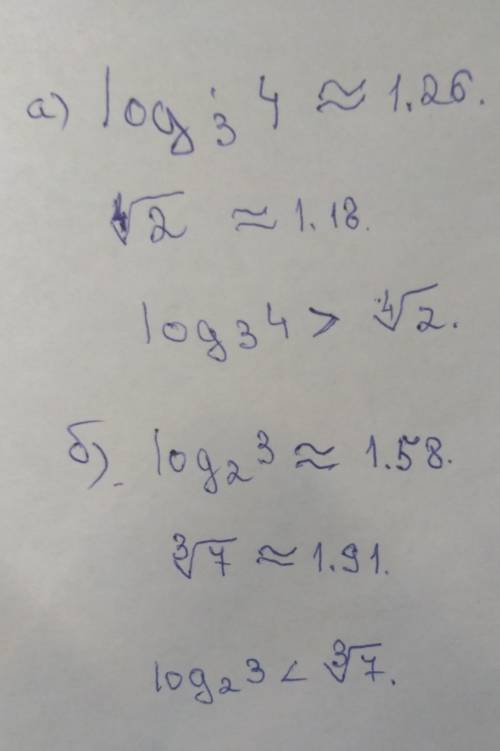 а) log₃ 4 ≈ 1.26.
∜2 ≈ 1.18.
log₃ 4 > ∜2.
б). log₂ 3 ≈ 1.58.
∛7 ≈ 1.91.
log₂ 3 < ∛7.